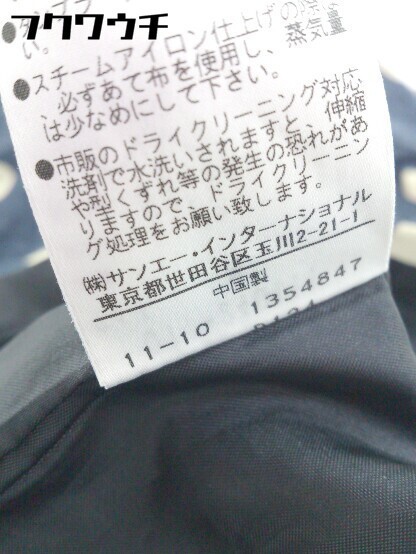 フクワウチ
い。
●スチームアイロン仕上げの際は
必ずあて布を使用し、蒸気量
は少なめにして下さい。
●市販のドライクリーニング対応
洗剤で水洗いされますと、伸縮
や型くずれ等の発生の恐れがあ
りますので、ドライクリーニン
グ処理をお願い致します。
㈱サンエー・インターナショナル
東京都世田谷区玉川2-21-1
中国製
11-10 1354847